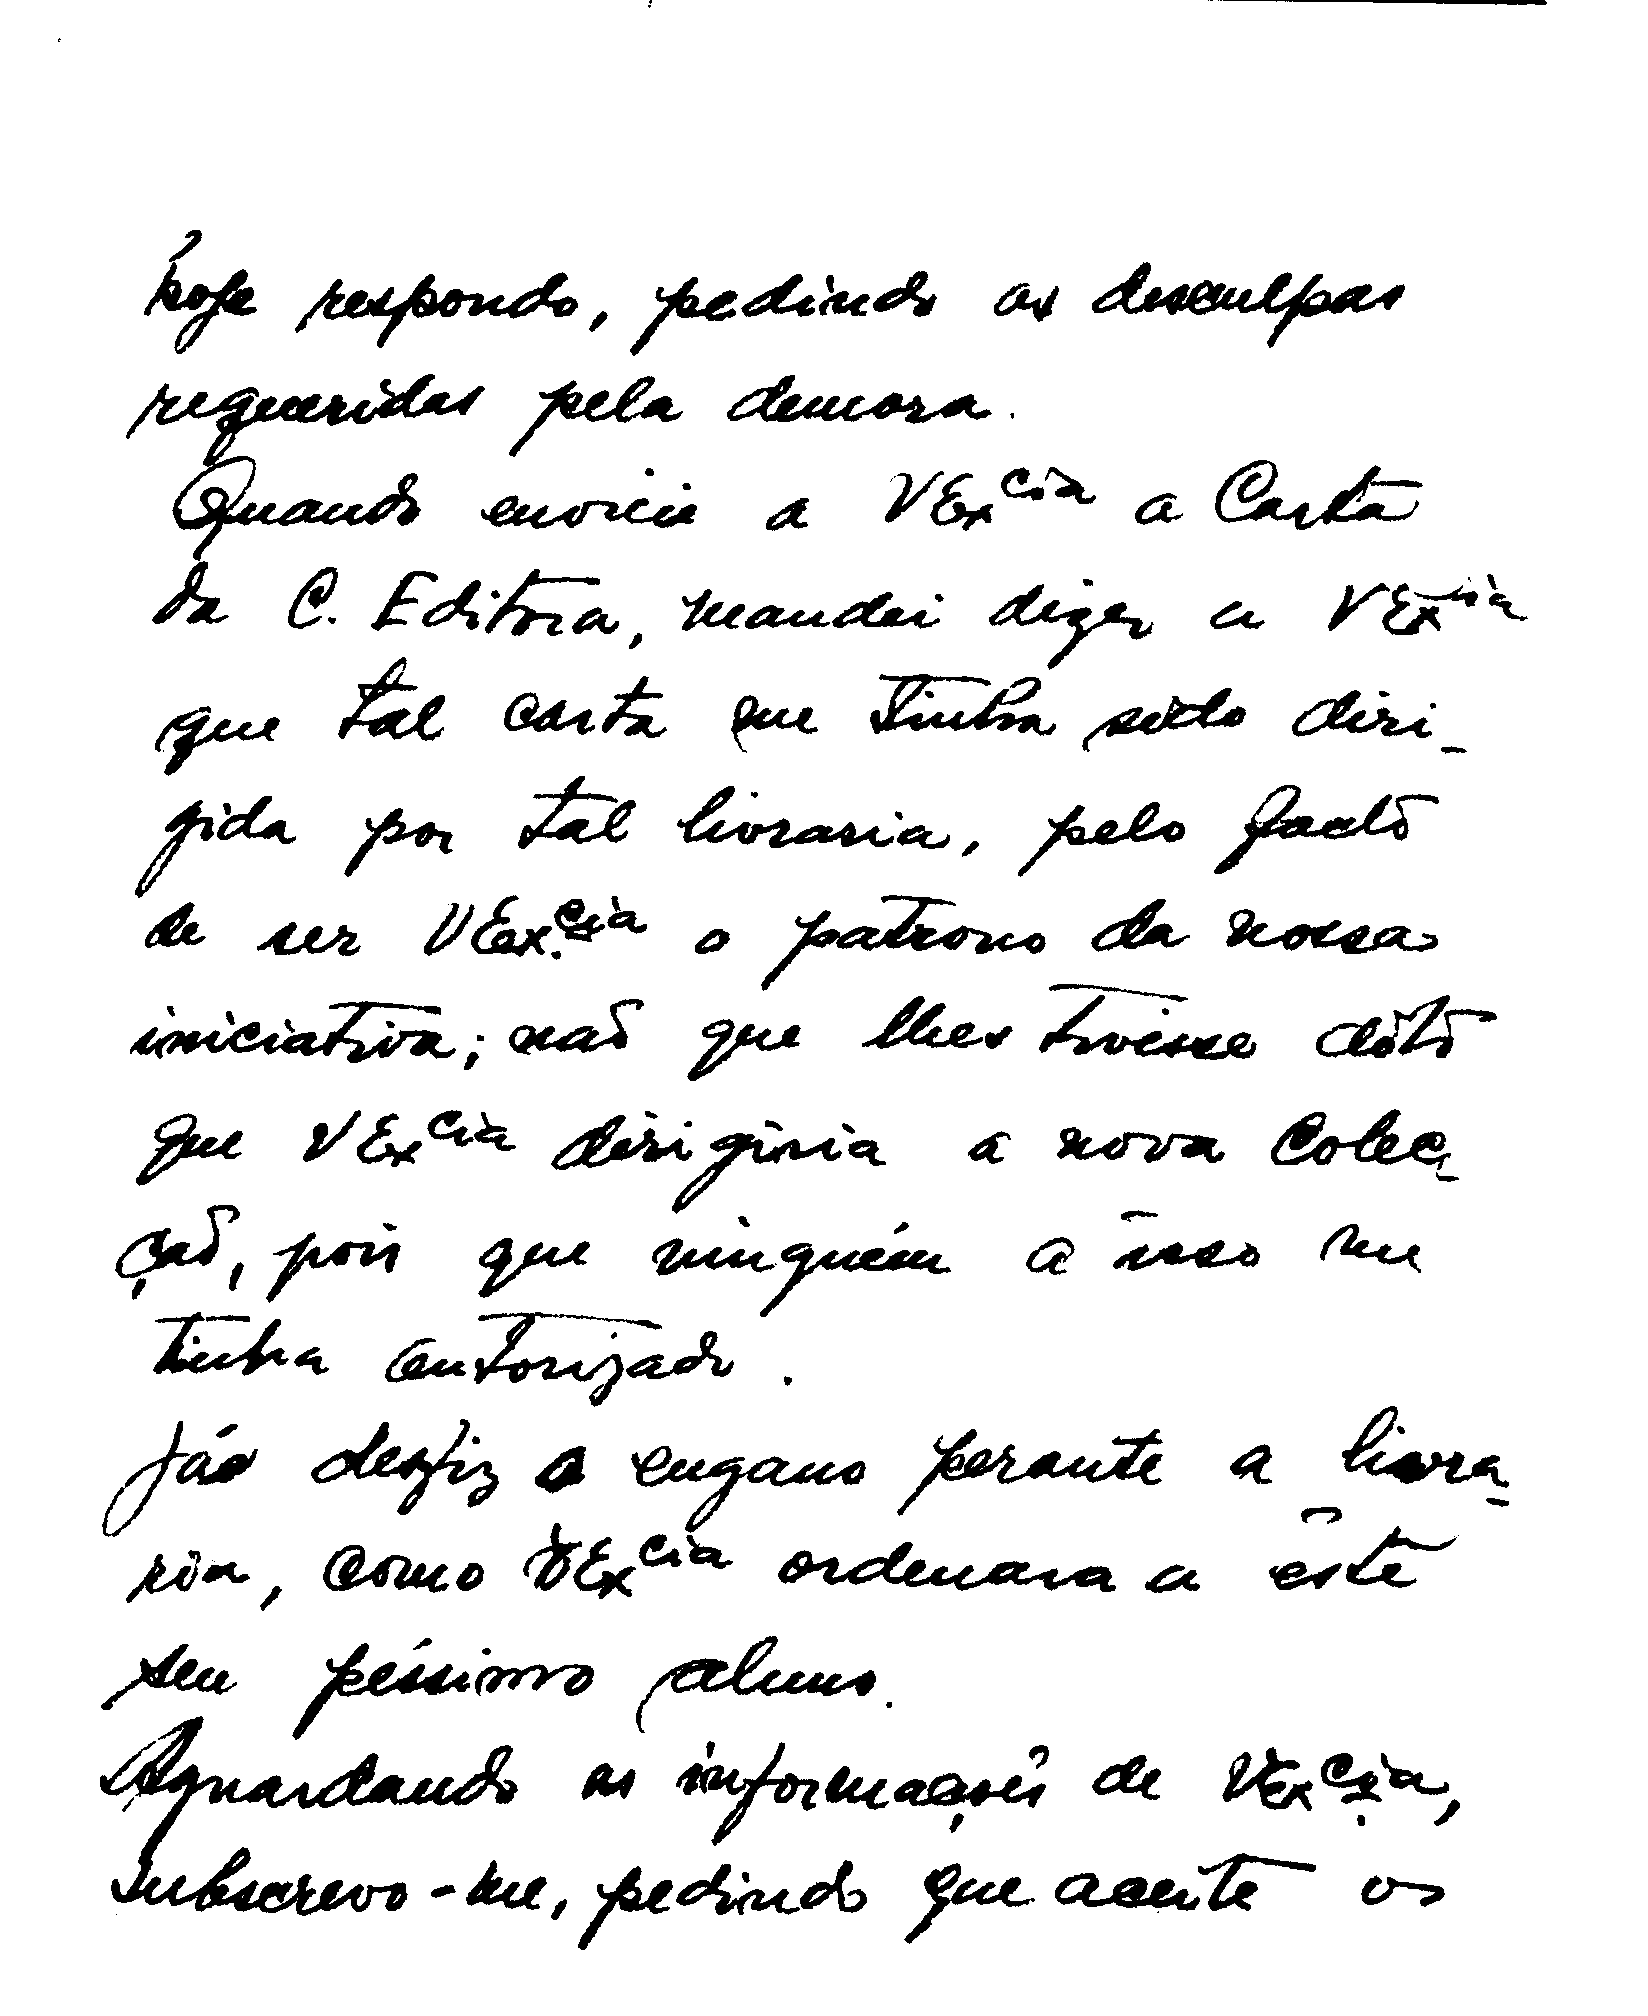 hoje respondo, pedindo as desculpas
requeridas pela demora.
Quando enviei a VExcia a Carta
da C. Editora, mandei dizer a VExcia
que tal carta me tinha sido diri-
gida por tal livraria, pelo facto
de ser VEx.cia o patrono da nossa
iniciativa; não que lhes tivesse dito
que VExcia dirigiria a nova Colec-
ção, pois que ninguém a isso me
tinha autorizado.
Já desfiz o engano perante a livra-
ria, como VExcia ordenara a êste
seu péssimo aluno.
Aguardando as informações de VExcia,
subscrevo-me, pedindo que aceite os